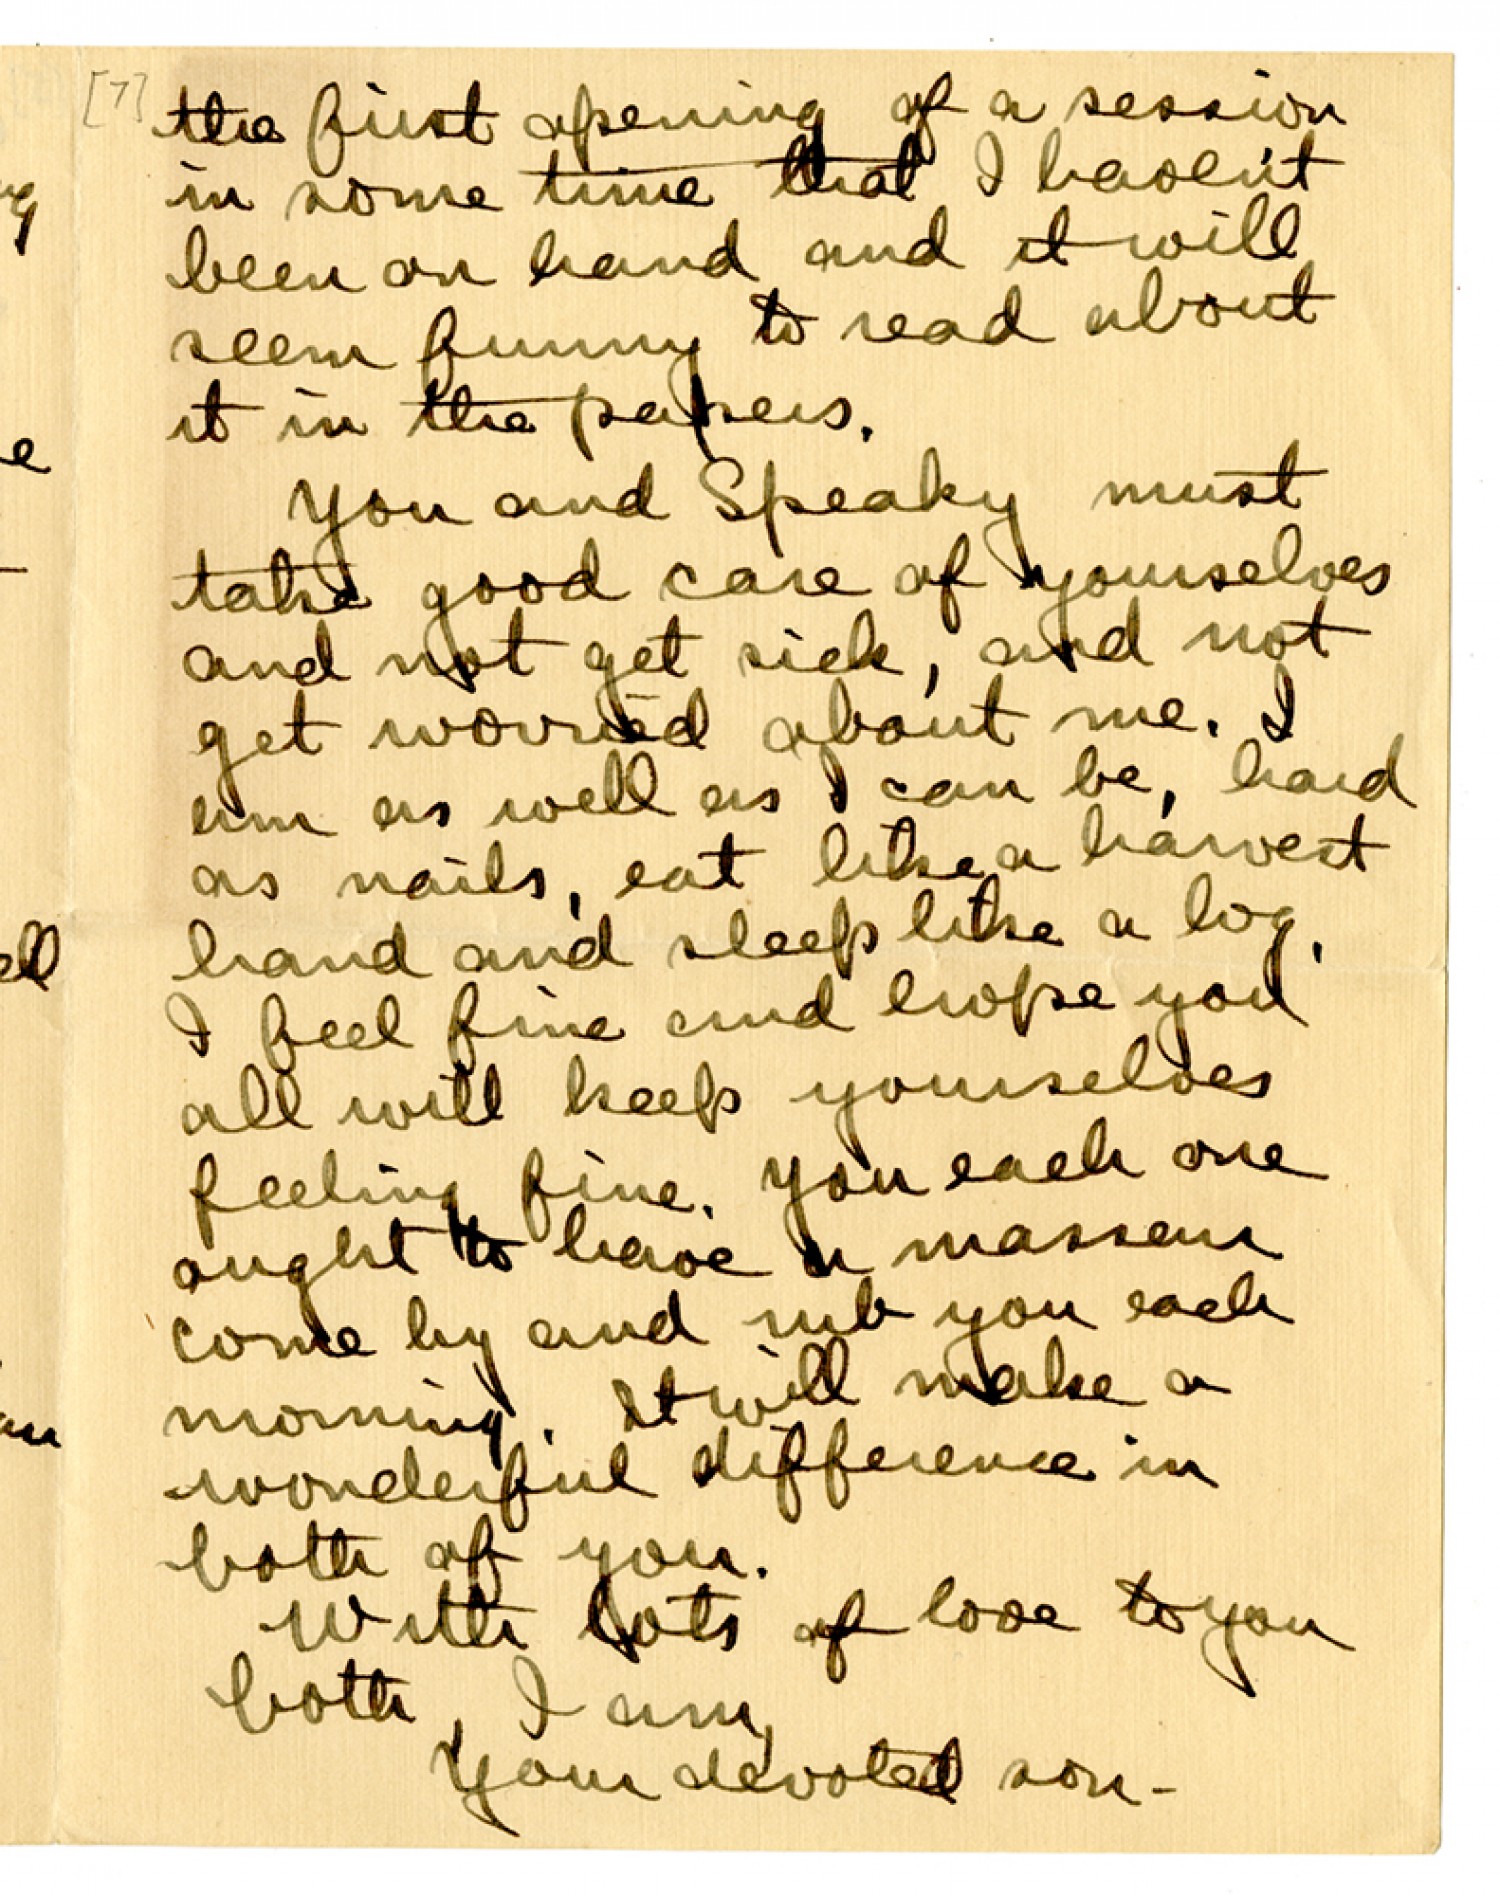 [7]
the first opening of a session
in some time that I haven't
been on hand and it will
seem funny to read about
it in the papers.
You and Speaky must
take good care of yourselves
and not get sick, and not
get worried about me. I
am as well as I can be, hard
as nails, eat like a harvest
hand and sleep like a log.
I feel fine and hope you
all will keep yourselves
feeling fine. You each one
ought to have a masseur
come by and rub you each
morning. It will make a
wonderful difference in
both of you.
With lots of love to you
both, I am
Your devoted son-